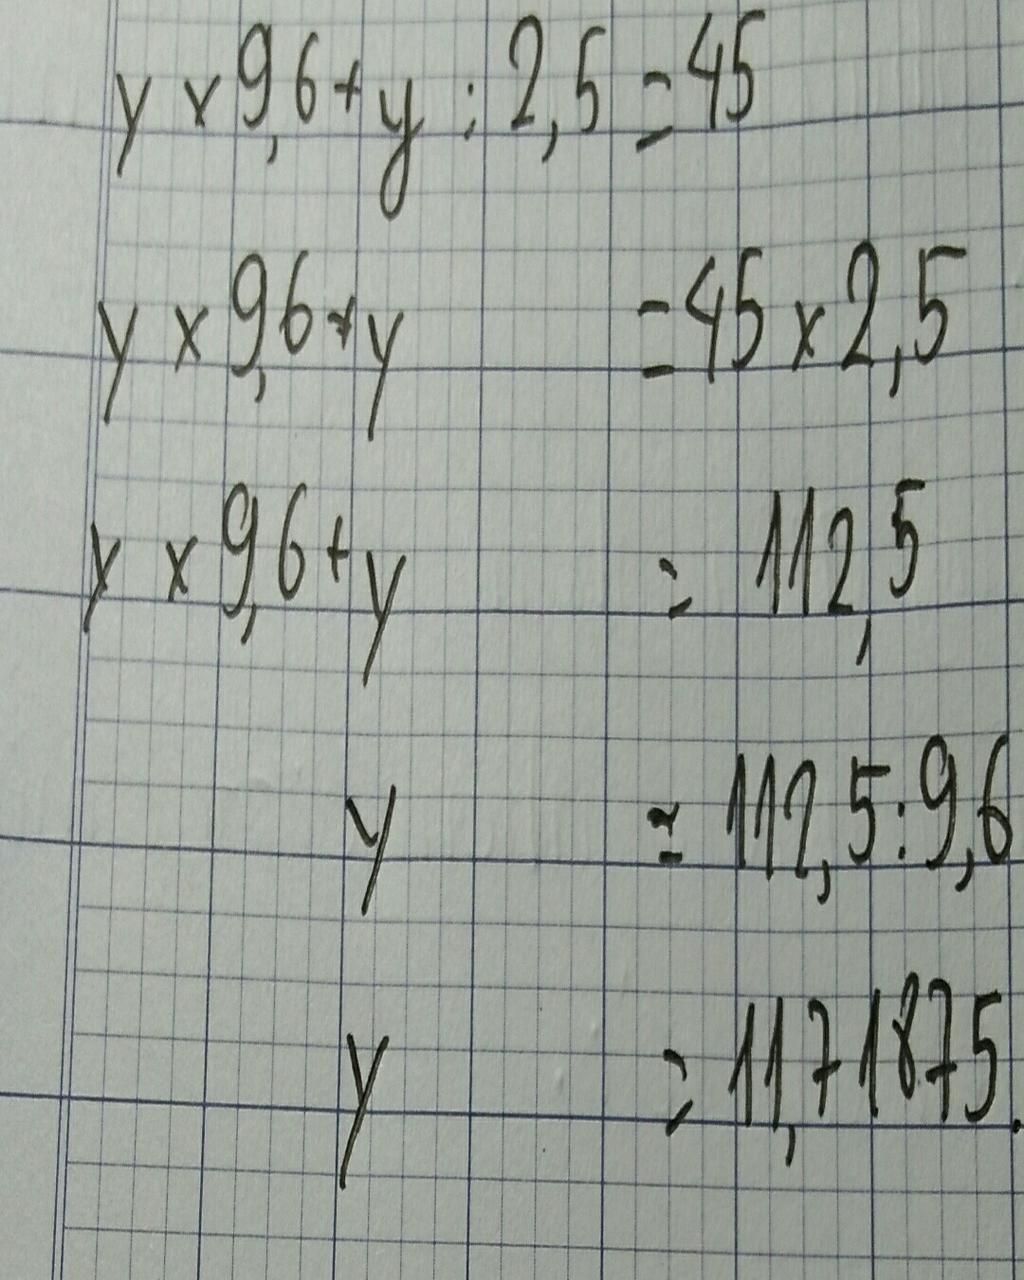 y x 9,6 + y : 2,5 = 45
y x 9,6 + y = 45 x 2,5
y x 9,6 + y = 112,5
y = 112,5 : 9,6
y = 11,71875.